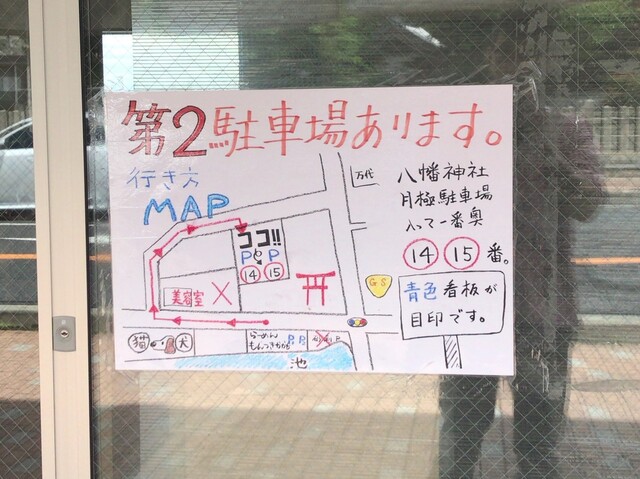 第2駐車場あります。
行き方
MAP
万代
八幡神社
月極駐車場
入って一番奥
⑭ ⑮ 番。
青色看板が
目印です。
ココ!!
P P
⑭ ⑮
美容室
GS
猫 犬
らーめん
P.P.
池